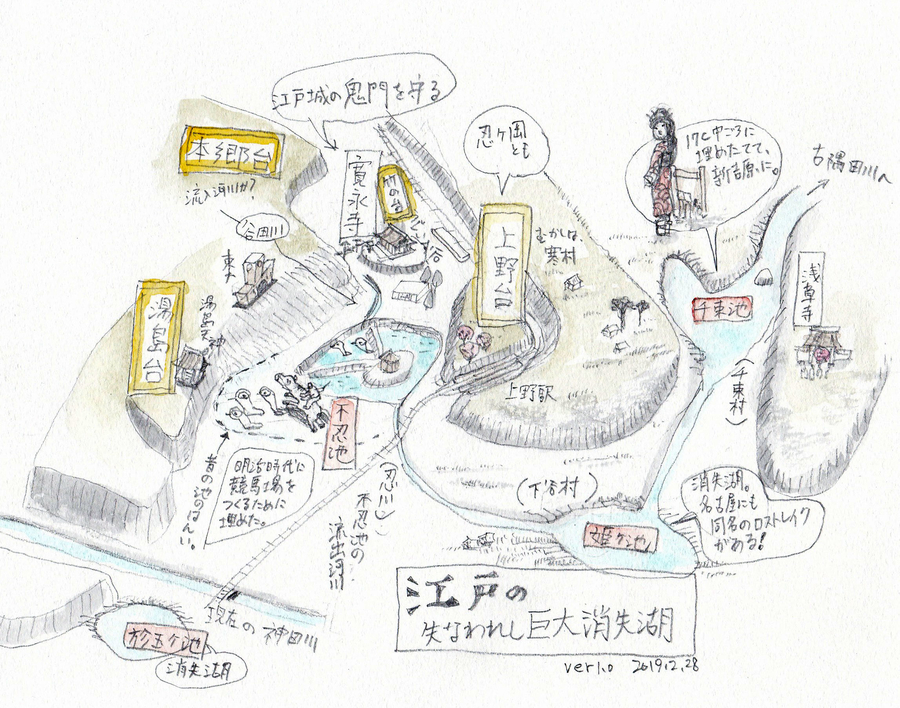 江戸城の鬼門を守る
本郷台
流入河川か?
谷田川
寛永寺
竹の台
忍ヶ岡
とも
上野台
むかしは、
寒村
17c中ごろに
埋めたてて、
新吉原に。
古隅田川へ
千束池
浅草寺
(千束村)
東大
湯島天神
湯島台
不忍池
上野駅
(下谷村)
明治時代に
競馬場を
つくるために
埋めた。
昔の池のはんい。
(忍川)
不忍池の
流出河川
消失湖。
名古屋にも
同名のロストレイク
がある!
姫ヶ池
現在の神田川
お玉ヶ池
消失湖
江戸の
失なわれし巨大消失湖
ver1.0 2019.2.28